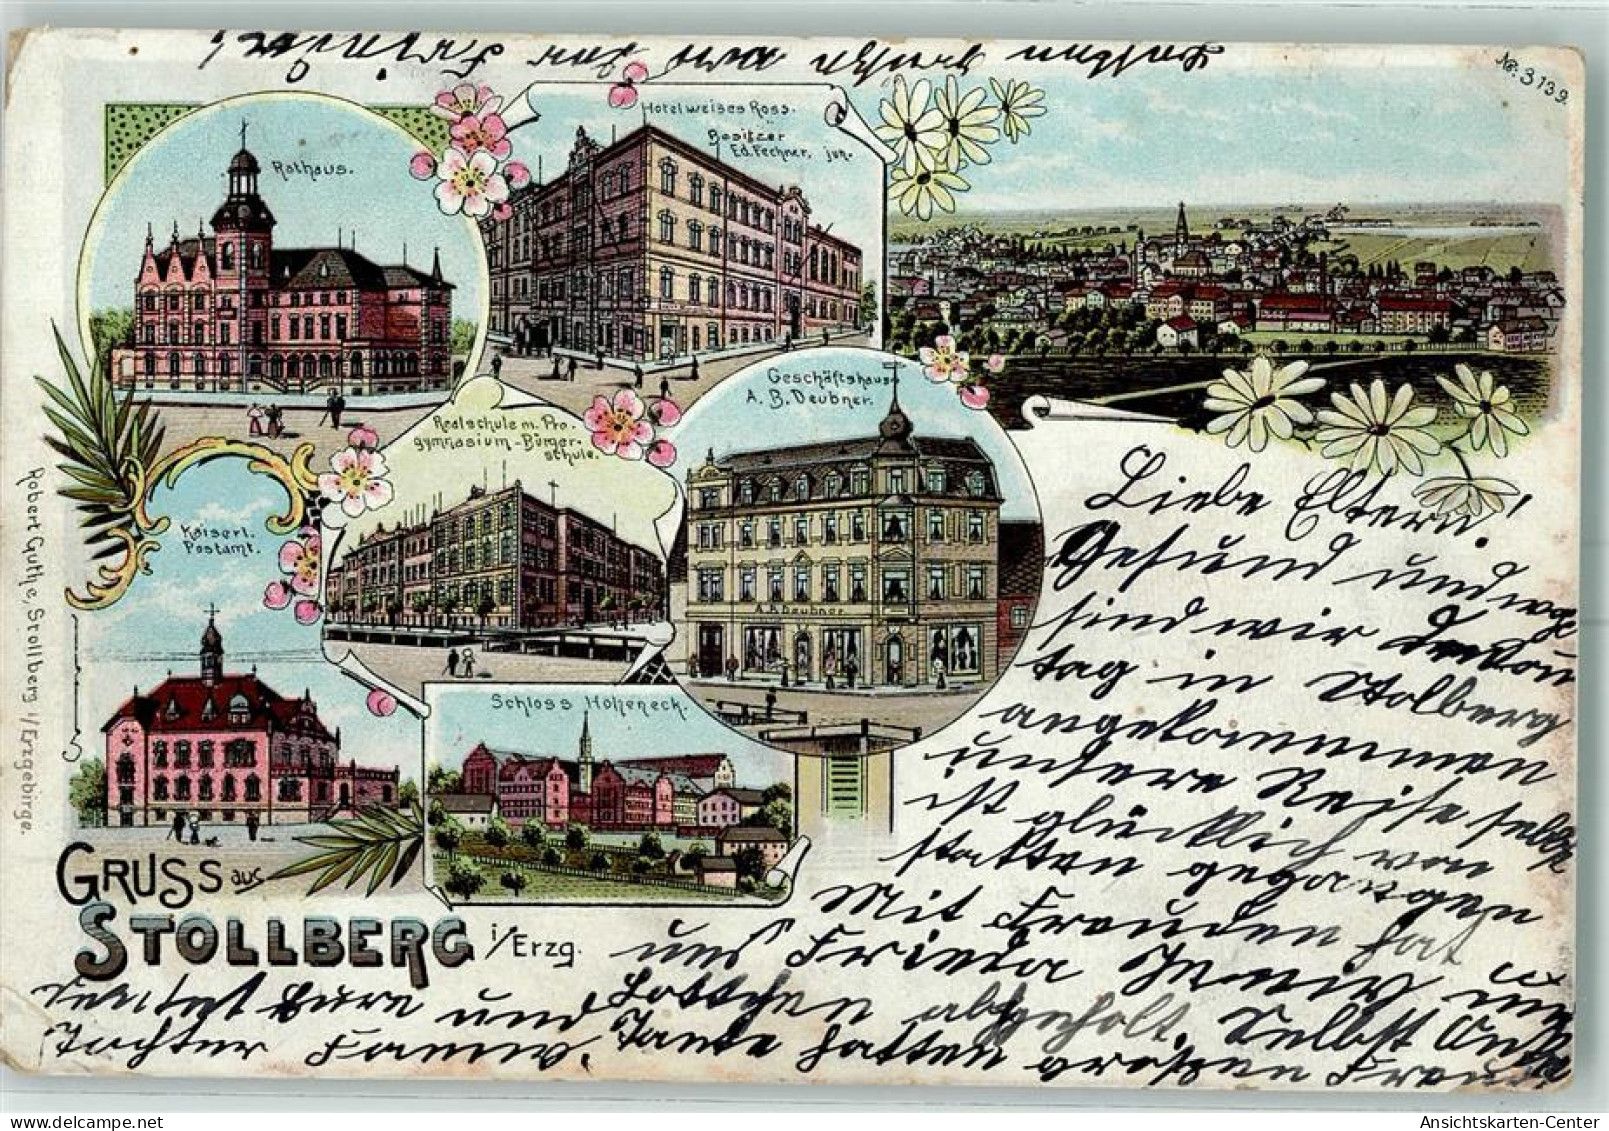 No. 3139.
Rathaus.
Hotel weises Ross.
Besitzer
Ed. Fechner, jun.
Geschäftshaus
A. B. Deubner.
Realschule m. Pro-
gymnasium-Bürger-
schule.
A.B. Deubner
Kaiserl.
Postamt.
Schloss Hoheneck.
Robert Guthe, Stollberg i/Erzgebirge.
GRUSS aus
STOLLBERG i/Erzg.
Liebe Eltern!
Gesund und
sind wir
tag in Stolberg
angekommen
unsere Reise
ist glücklich von
statten gegangen
Mit Freuden hat
uns Frieda
Lottchen abgeholt. Selbst
Tante hatten grosen
Eure und
Tochter
Ansichtskarten-Center